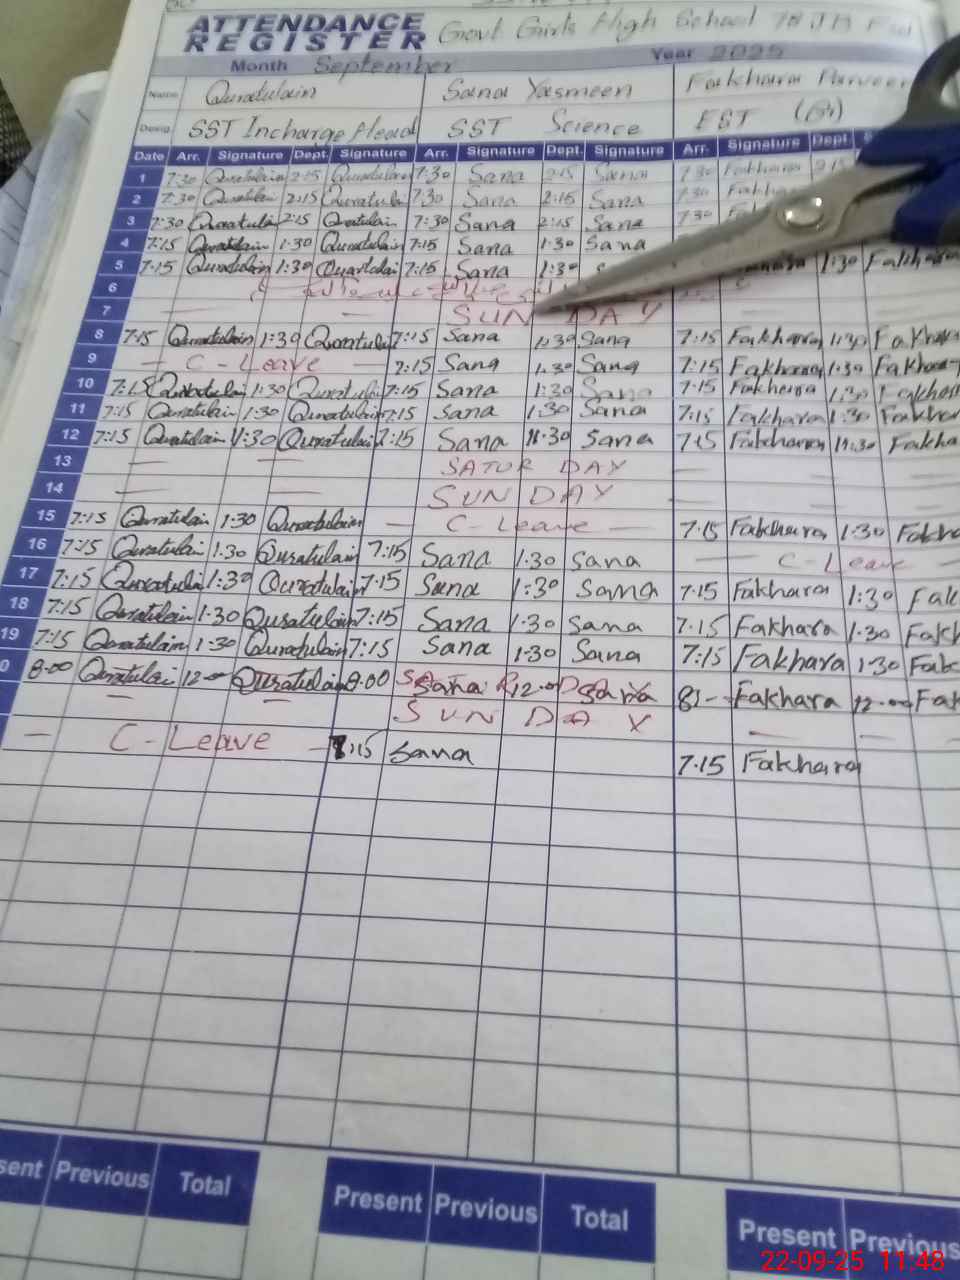 ATTENDANCE REGISTER Govt Girls High School 78 JB Fsd
Month September Year 2025
Name Quratulain Sana Yasmeen Fakhara Parveen
Desig. SST Incharge Head SST Science EST
Date Arr. Signature Dept. Signature Arr. Signature Dept. Signature Arr. Signature Dept.
1 7:30 Quratulain 2:15 Quratulain 7:30 Sana 2:15 Sana 7:30 Fakhara 2:15
2 7:30 Quratulain 2:15 Quratulai 7:30 Sana 2:15 Sana 7:30
3 7:30 Quratulai 2:15 Quratulain 7:30 Sana 2:15 Sana 7:30
4 7:15 Quratulain 1:30 Quratulain 7:15 Sana 1:30 Sana
5 7:15 Quratulain 1:30 Quratulai 7:15 Sana 1:30 1:30 Fakhara
6
7 — — SUN DAY
8 7:15 Quratulain 1:30 Quratulai 7:15 Sana 1:30 Sana 7:15 Fakhara 1:30 Fakhara
9 — C-Leave — 7:15 Sana 1:30 Sana 7:15 Fakhara 1:30 Fakhara
10 7:15 Quratulain 1:30 Quratulain 7:15 Sana 1:30 Sana 7:15 Fakhara 1:30 Fakhar
11 7:15 Quratulain 1:30 Quratulain 7:15 Sana 1:30 Sana 7:15 Fakhara 1:30 Fakhar
12 7:15 Quratulain 1:30 Quratulain 7:15 Sana 11:30 Sana 7:15 Fakhara 11:30 Fakha
13 — — SATUR DAY —
14 — — SUN DAY —
15 7:15 Quratulain 1:30 Quratulain — C-Leave — 7:15 Fakhara 1:30 Fakha
16 7:15 Quratulain 1:30 Quratulain 7:15 Sana 1:30 Sana — C-Leave —
17 7:15 Quratulai 1:30 Quratulain 7:15 Sana 1:30 Sana 7:15 Fakhara 1:30 Fak
18 7:15 Quratulain 1:30 Quratulain 7:15 Sana 1:30 Sana 7:15 Fakhara 1:30 Fakh
19 7:15 Quratulain 1:30 Quratulain 7:15 Sana 1:30 Sana 7:15 Fakhara 1:30 Fak
0 8:00 Quratulai 12:00 Quratulain 8:00 Sana 12:00 Sana Fakhara 12:00 Fak
— — SUN DAY — —
— C-Leave — 7:15 Sana 7:15 Fakhara
sent Previous Total Present Previous Total Present Previous
22-09-25 11:48